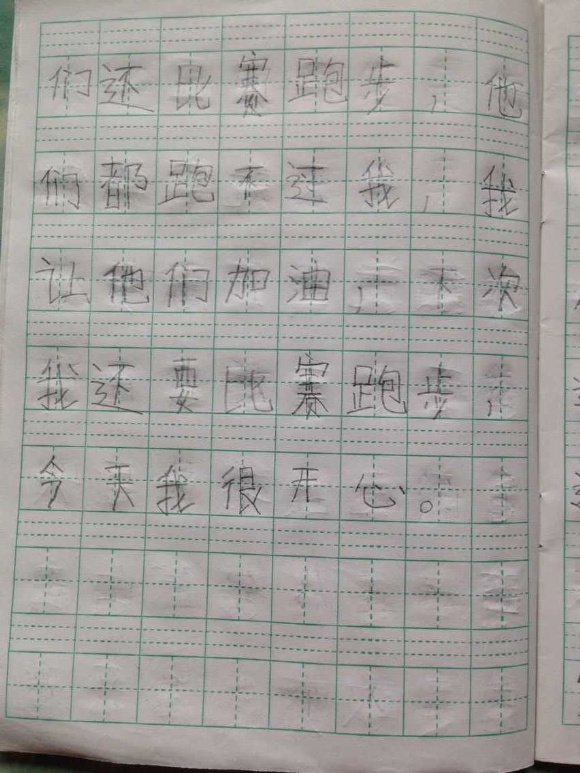 们还比赛跑步，他
们都跑不过我，我
让他们加油，下次
我还要比赛跑步，
今天我很开心。